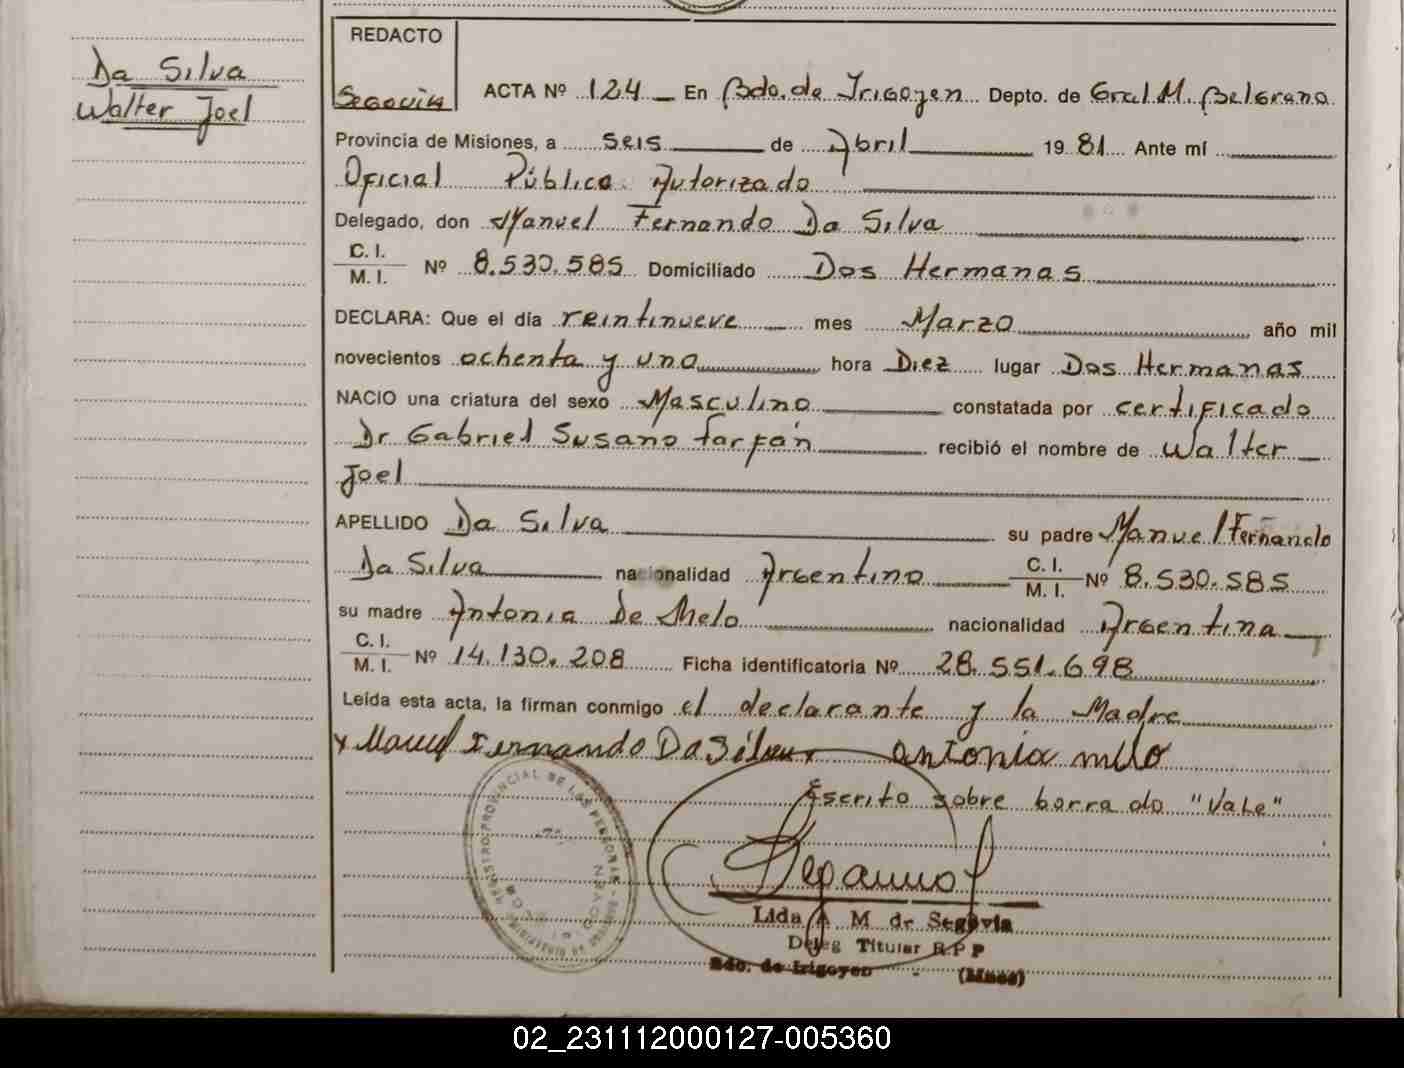 Da Silva
Walter Joel
REDACTO
Segovia
ACTA Nº 124 En Bdo. de Irigoyen Depto. de Gral M. Belgrano
Provincia de Misiones, a seis de Abril 1981 Ante mí
Oficial Público Autorizado
Delegado, don Manuel Fernando Da Silva
C. I.
M. I. Nº 8.530.585 Domiciliado Dos Hermanas
DECLARA: Que el día veintinueve mes Marzo año mil
novecientos ochenta y uno hora Diez lugar Dos Hermanas
NACIO una criatura del sexo Masculino constatada por certificado
Dr Gabriel Susano Farfán recibió el nombre de Walter
Joel
APELLIDO Da Silva su padre Manuel Fernando
Da Silva nacionalidad Argentino C. I. M. I. Nº 8.530.585
su madre Antonia De Melo nacionalidad Argentina
C. I.
M. I. Nº 14.130.208 Ficha identificatoria Nº 28.551.698
Leída esta acta, la firman conmigo el declarante y la Madre
x Manuel Fernando Da Silva x antonia melo
Escrito sobre borrado "Vale"
REGISTRO PROVINCIAL DE LAS PERSONAS
Lida A M de Segovia
Deleg Titular R.P.P
Bdo. de Irigoyen - (Mnes)
02_231112000127-005360